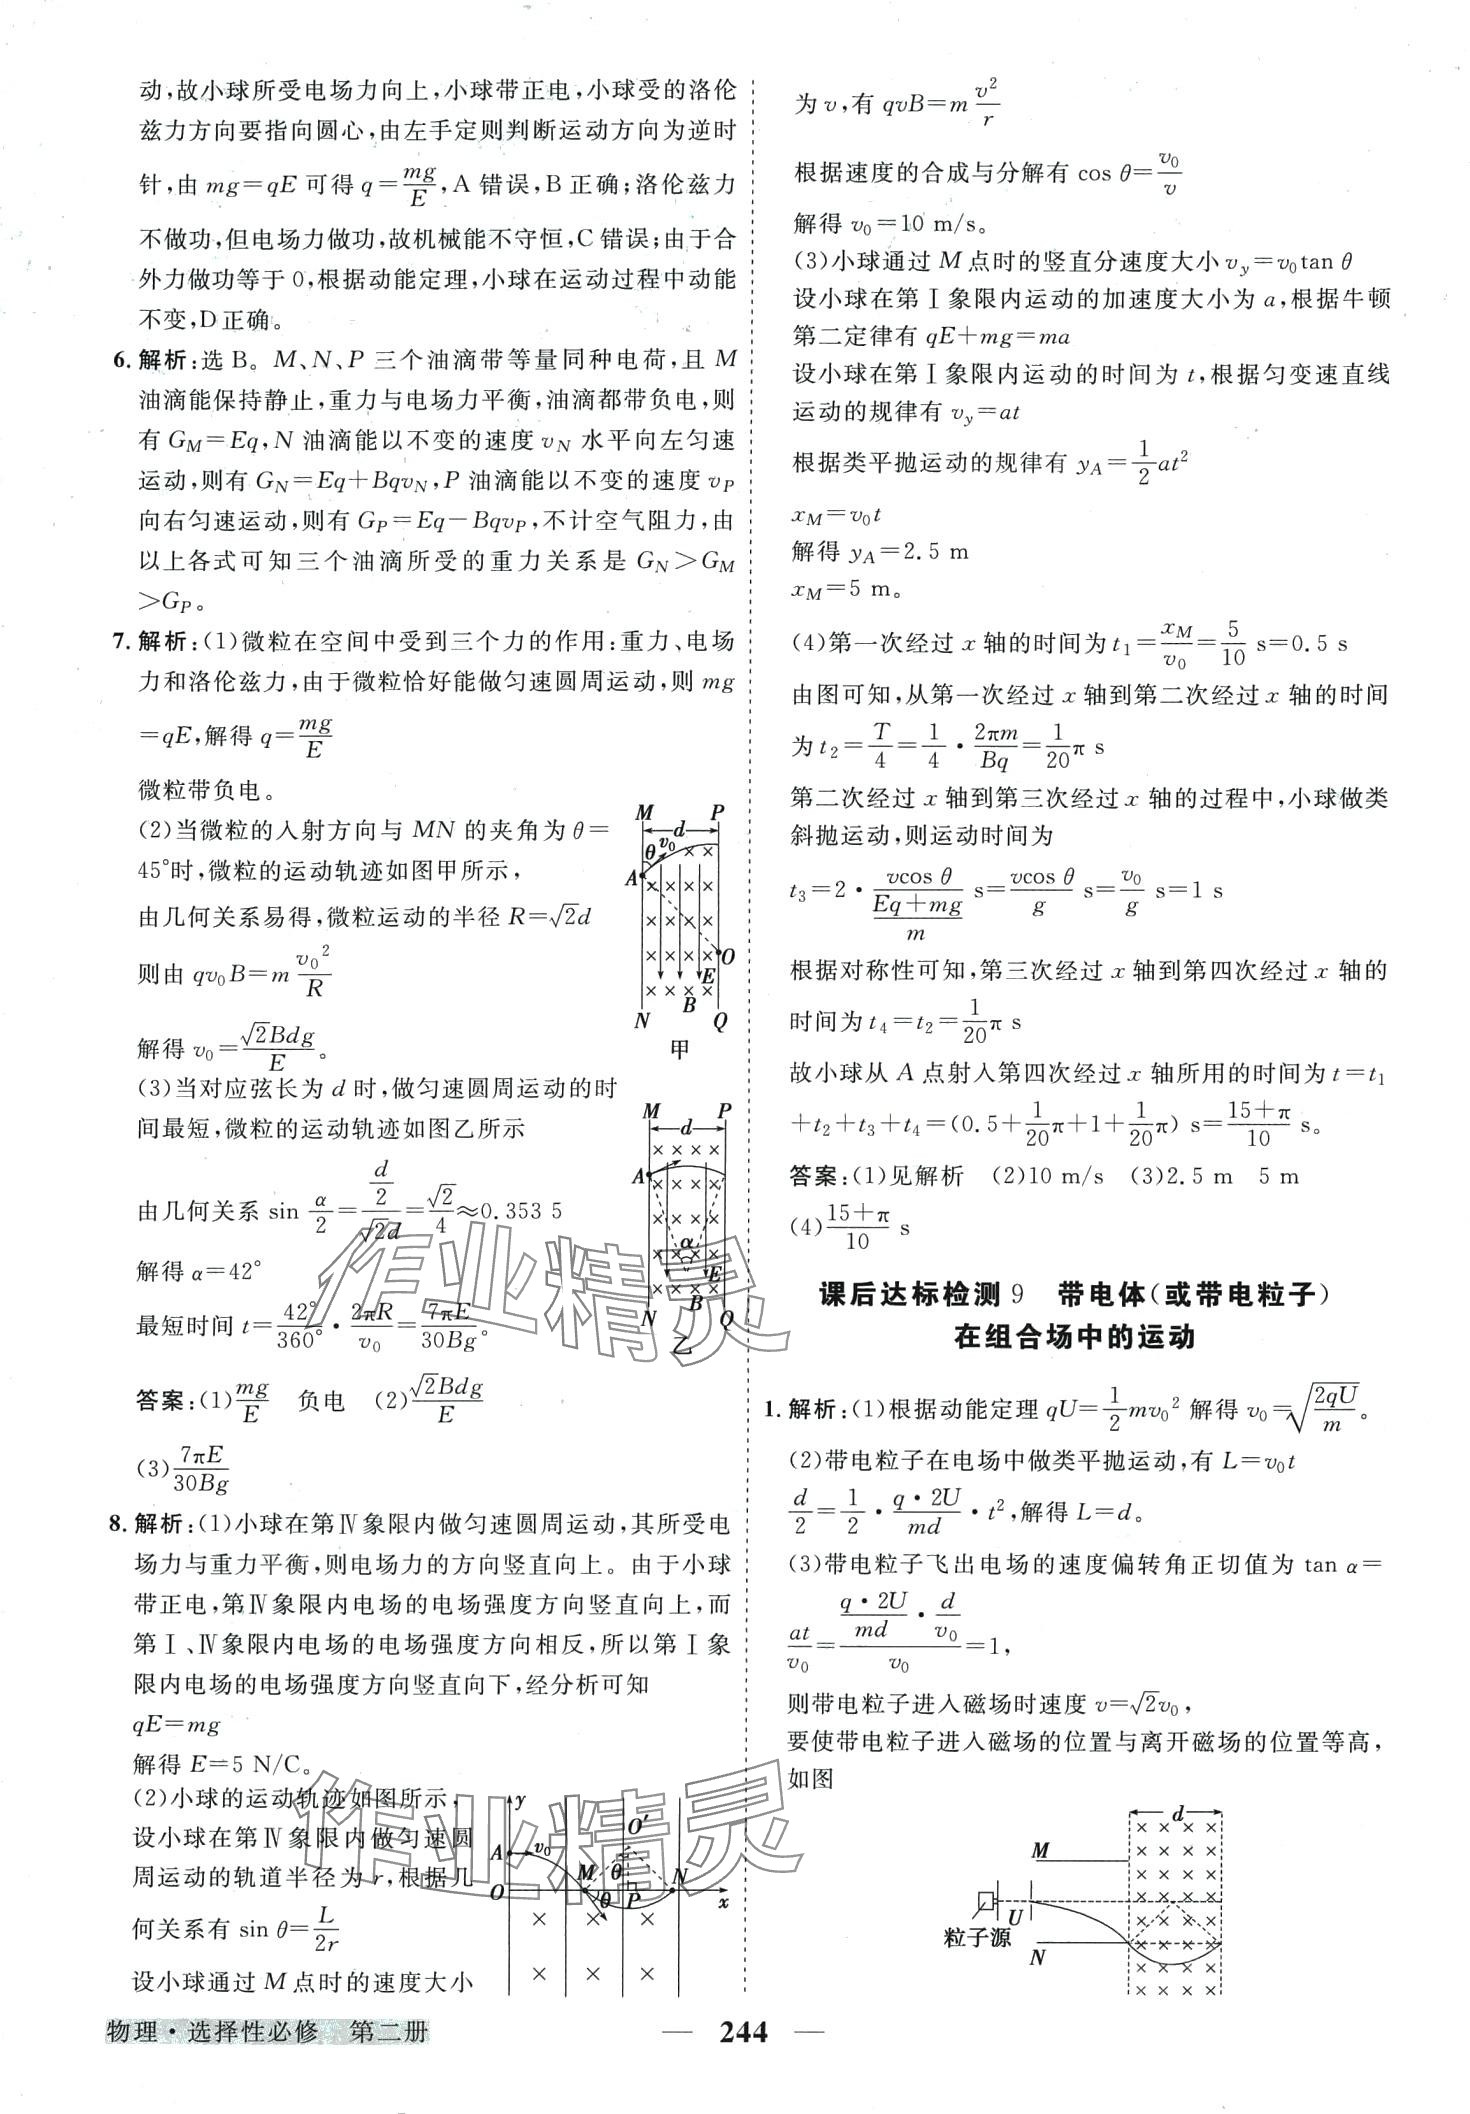 动,故小球所受电场力向上,小球带正电,小球受的洛伦
兹力方向要指向圆心,由左手定则判断运动方向为逆时
针,由 mg=qE 可得 q=mg/E,A 错误,B 正确;洛伦兹力
不做功,但电场力做功,故机械能不守恒,C 错误;由于合
外力做功等于 0,根据动能定理,小球在运动过程中动能
不变,D 正确。
6. 解析:选 B。M、N、P 三个油滴带等量同种电荷,且 M
油滴能保持静止,重力与电场力平衡,油滴都带负电,则
有 G_M=Eq,N 油滴能以不变的速度 v_N 水平向左匀速
运动,则有 G_N=Eq+Bqv_N,P 油滴能以不变的速度 v_P
向右匀速运动,则有 G_P=Eq−Bqv_P,不计空气阻力,由
以上各式可知三个油滴所受的重力关系是 G_N>G_M
>G_P。
7. 解析:(1)微粒在空间中受到三个力的作用:重力、电场
力和洛伦兹力,由于微粒恰好能做匀速圆周运动,则 mg
=qE,解得 q=mg/E
微粒带负电。
(2)当微粒的入射方向与 MN 的夹角为 θ=
45°时,微粒的运动轨迹如图甲所示,
由几何关系易得,微粒运动的半径 R=√2d
则由 qv₀B=m v₀²/R
解得 v₀=√2Bdg/E。
M P
d
θ v₀
A
O
E
B
N Q
甲
(3)当对应弦长为 d 时,做匀速圆周运动的时
间最短,微粒的运动轨迹如图乙所示
由几何关系 sin α/2=(d/2)/(√2d)=√2/4≈0.353 5
解得 α=42°
最短时间 t=42°/360°·2πR/v₀=7πE/30Bg。
M P
d
A
α
E
B
N Q
乙
答案:(1)mg/E 负电 (2)√2Bdg/E
(3)7πE/30Bg
8. 解析:(1)小球在第Ⅳ象限内做匀速圆周运动,其所受电
场力与重力平衡,则电场力的方向竖直向上。由于小球
带正电,第Ⅳ象限内电场的电场强度方向竖直向上,而
第Ⅰ、Ⅳ象限内电场的电场强度方向相反,所以第Ⅰ象
限内电场的电场强度方向竖直向下,经分析可知
qE=mg
解得 E=5 N/C。
(2)小球的运动轨迹如图所示,
设小球在第Ⅳ象限内做匀速圆
周运动的轨道半径为 r,根据几
何关系有 sin θ=L/2r
设小球通过 M 点时的速度大小
y
O′
A v₀
M θ N
O θ P x
为 v,有 qvB=m v²/r
根据速度的合成与分解有 cos θ=v₀/v
解得 v₀=10 m/s。
(3)小球通过 M 点时的竖直分速度大小 v_y=v₀tan θ
设小球在第Ⅰ象限内运动的加速度大小为 a,根据牛顿
第二定律有 qE+mg=ma
设小球在第Ⅰ象限内运动的时间为 t,根据匀变速直线
运动的规律有 v_y=at
根据类平抛运动的规律有 y_A=1/2 at²
x_M=v₀t
解得 y_A=2.5 m
x_M=5 m。
(4)第一次经过 x 轴的时间为 t₁=x_M/v₀=5/10 s=0.5 s
由图可知,从第一次经过 x 轴到第二次经过 x 轴的时间
为 t₂=T/4=1/4·2πm/Bq=1/20 π s
第二次经过 x 轴到第三次经过 x 轴的过程中,小球做类
斜抛运动,则运动时间为
t₃=2·vcos θ/((Eq+mg)/m) s=vcos θ/g s=v₀/g s=1 s
根据对称性可知,第三次经过 x 轴到第四次经过 x 轴的
时间为 t₄=t₂=1/20 π s
故小球从 A 点射入第四次经过 x 轴所用的时间为 t=t₁
+t₂+t₃+t₄=(0.5+1/20 π+1+1/20 π) s=(15+π)/10 s。
答案:(1)见解析 (2)10 m/s (3)2.5 m 5 m
(4)(15+π)/10 s
课后达标检测 9 带电体(或带电粒子)
在组合场中的运动
1. 解析:(1)根据动能定理 qU=1/2 mv₀² 解得 v₀=√(2qU/m)。
(2)带电粒子在电场中做类平抛运动,有 L=v₀t
d/2=1/2·q·2U/md·t²,解得 L=d。
(3)带电粒子飞出电场的速度偏转角正切值为 tan α=
at/v₀=(q·2U/md·d/v₀)/v₀=1,
则带电粒子进入磁场时速度 v=√2v₀,
要使带电粒子进入磁场的位置与离开磁场的位置等高,
如图
d
M
粒子源 U
N
作业精灵
作业精灵
物理·选择性必修 第二册
— 244 —